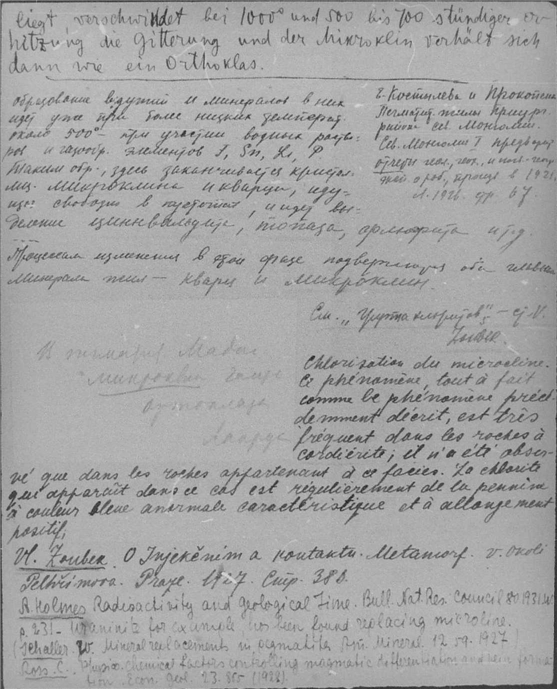 liegt verschwindet bei 1000° und 500 bis 700 stündiger er
hitzung die Gitterung und der Mikroklin verhält sich
dann wie ein Orthoklas.
образование и минералов в них
идет уже при более низких температ.
около 500° при участии водных раств
ров и газообр. элементов F, Sn, Li, P
Таким обр., здесь заканчивается кристал
лиз. микроклина и кварца, иду
щее свободно в пустотах, и идет вы
деление циннвальдита, топаза, флюорита и т.д.
Процессам изменения в этой фазе подвергаются оба главных
минерала жил — кварц и микроклин.
Е. Костылева и Прокопенко
Пегматит. жилы
района сев. Монголии.
Сев. Монголия I предварит
отчеты геол., геох., и
о раб., произв в 1925
Л. 1926. стр. 67
См. „Группа хлоритов" — ст. V.
Zoubek.
Микроклин
ортоклаза
Chlorisation du microcline.
Ce phénomène, tout à fait
comme le phénomène précé-
demment décrit, est très
fréquent dans les roches à
cordiérite; il n'a été obser-
vé que dans les roches appartenant à ce facies. La chlorite
qui apparaît dans ce cas est régulièrement de la pennine
à couleur bleue anormale caractéristique et à allongement
positif.
Vl. Zoubek. O Injekčním a kontaktu. Metamorf. v. okolí
Pelhřimova. Praze. 1927. Стр. 388.
A. Holmes Radioactivity and Geological Time. Bull. Nat. Res. Council 80 1931
p. 231 - Uraninite for example has been found replacing microline.
(Schaller W. Mineral replacements in pegmatites Am. Mineral. 12 59. 1927
Ross C. Physico-chemical factors controlling magmatic differentiation and vein forma-
tion. Econ. geol. 23. 865 (1928).